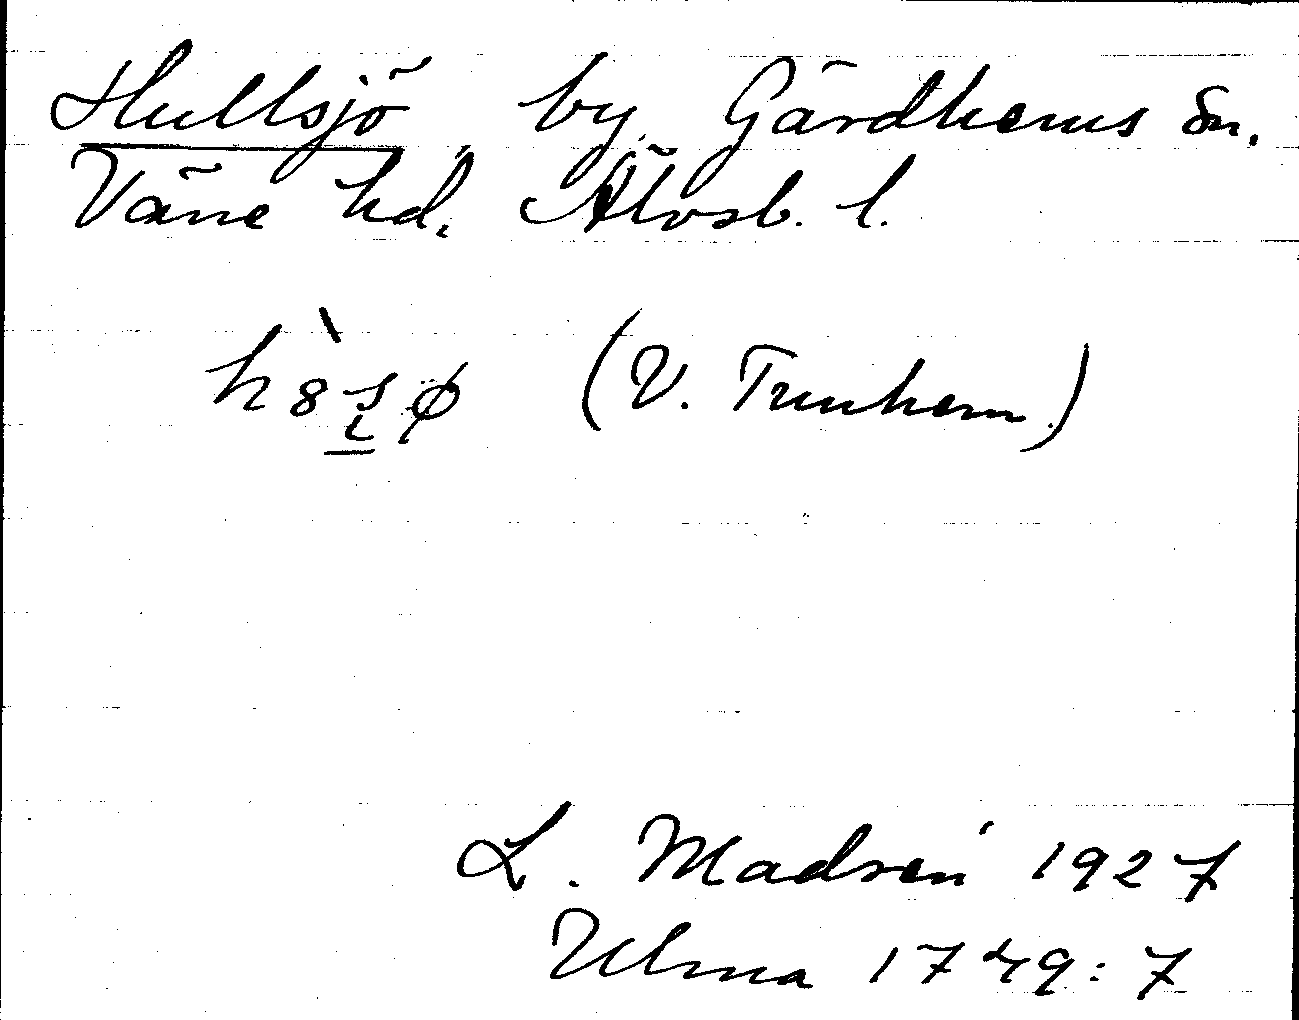 Hullsjö by, Gärdhems sn.
Väne hd. Älvsb. l.
(V. Tunhem)
L. Madsén 1927
Ulma 1749:7